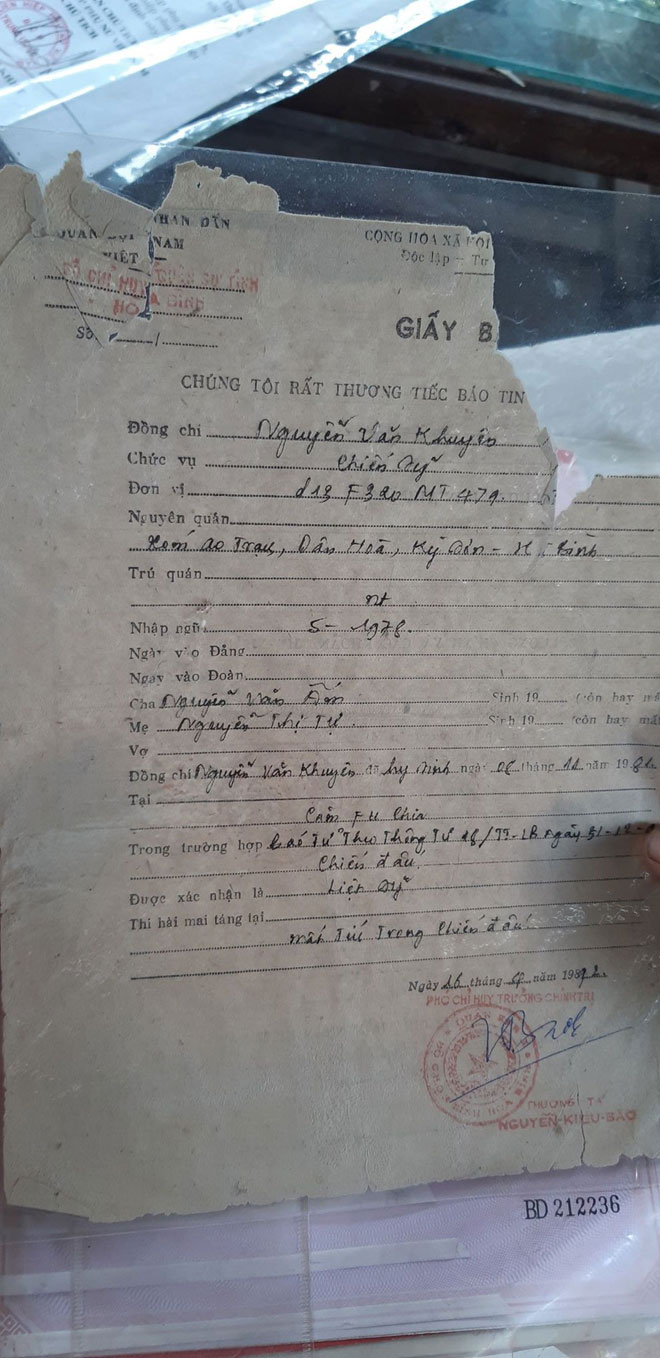 CHỦ TỊCH
NHÂN DÂN
QUÂN ĐỘI NAM
VIỆT
BỘ CHỈ HUY QUÂN SỰ TỈNH
HÒA BÌNH
Số /
CỘNG HÒA XÃ HỘI
Độc lập — Tự
GIẤY B
CHÚNG TÔI RẤT THƯƠNG TIẾC BÁO TIN
Đồng chí Nguyễn Văn Khuyên
Chức vụ Chiến sỹ
Đơn vị d13 F320 MT 479
Nguyên quán
Xóm ao Trạch, Dân Hoà, Kỳ Sơn - H Bình
Trú quán
nt
Nhập ngũ 5-1978.
Ngày vào Đảng
Ngày vào Đoàn
Cha Nguyễn Văn Ấm Sinh 19 (còn hay mấ
Mẹ Nguyễn Thị Tự Sinh 19 (còn hay mất
Vợ
Đồng chí Nguyễn Văn Khuyên đã hy sinh ngày 08 tháng năm 198
Tại
Căm Fu Chia
Trong trường hợp Báo Tử Theo Thông Tư /TT-LB ngày 31-12-
Chiến đấu
Được xác nhận là Liệt sỹ
Thi hài mai táng tại
mất Tích Trong Chiến đấu
Ngày 26 tháng năm 198
PHÓ CHỈ HUY TRƯỞNG CHÍNH TRỊ
THƯỢNG TÁ
NGUYỄN-KIỀU-BÀO
BD 212236